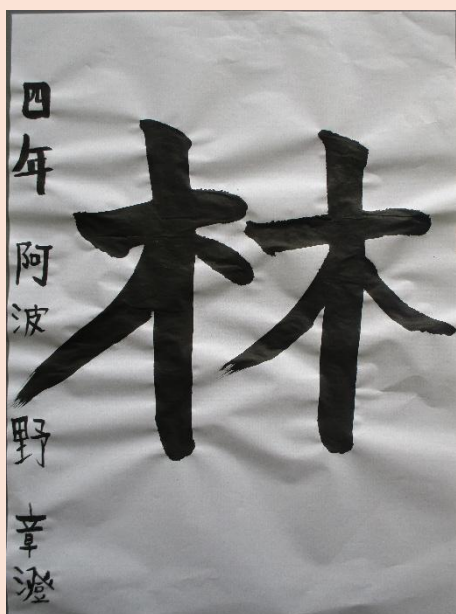 林
四年 阿波野 章澄